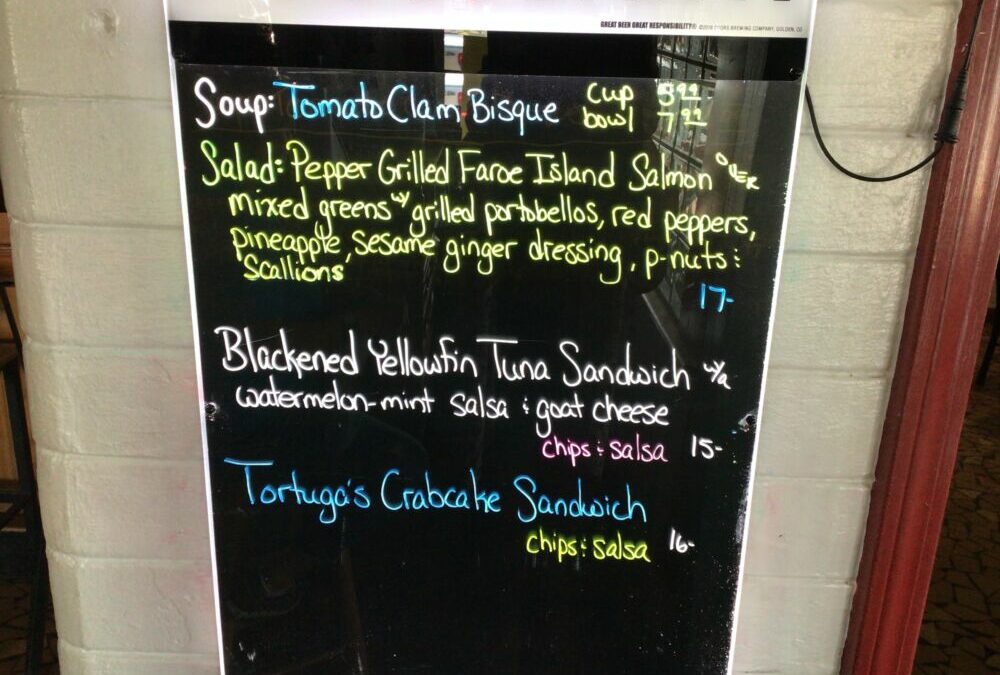 GREAT BEER GREAT RESPONSIBILITY® ©2009 COORS BREWING COMPANY, GOLDEN, CO
Soup: Tomato Clam Bisque cup 5.99
bowl 7.99
Salad: Pepper Grilled Faroe Island Salmon OVER
mixed greens w/ grilled portobellos, red peppers,
pineapple, sesame ginger dressing, p-nuts :
scallions
17-
Blackened Yellowfin Tuna Sandwich w/a
watermelon-mint salsa : goat cheese
chips : salsa 15-
Tortuga's Crabcake Sandwich
chips : salsa 16-